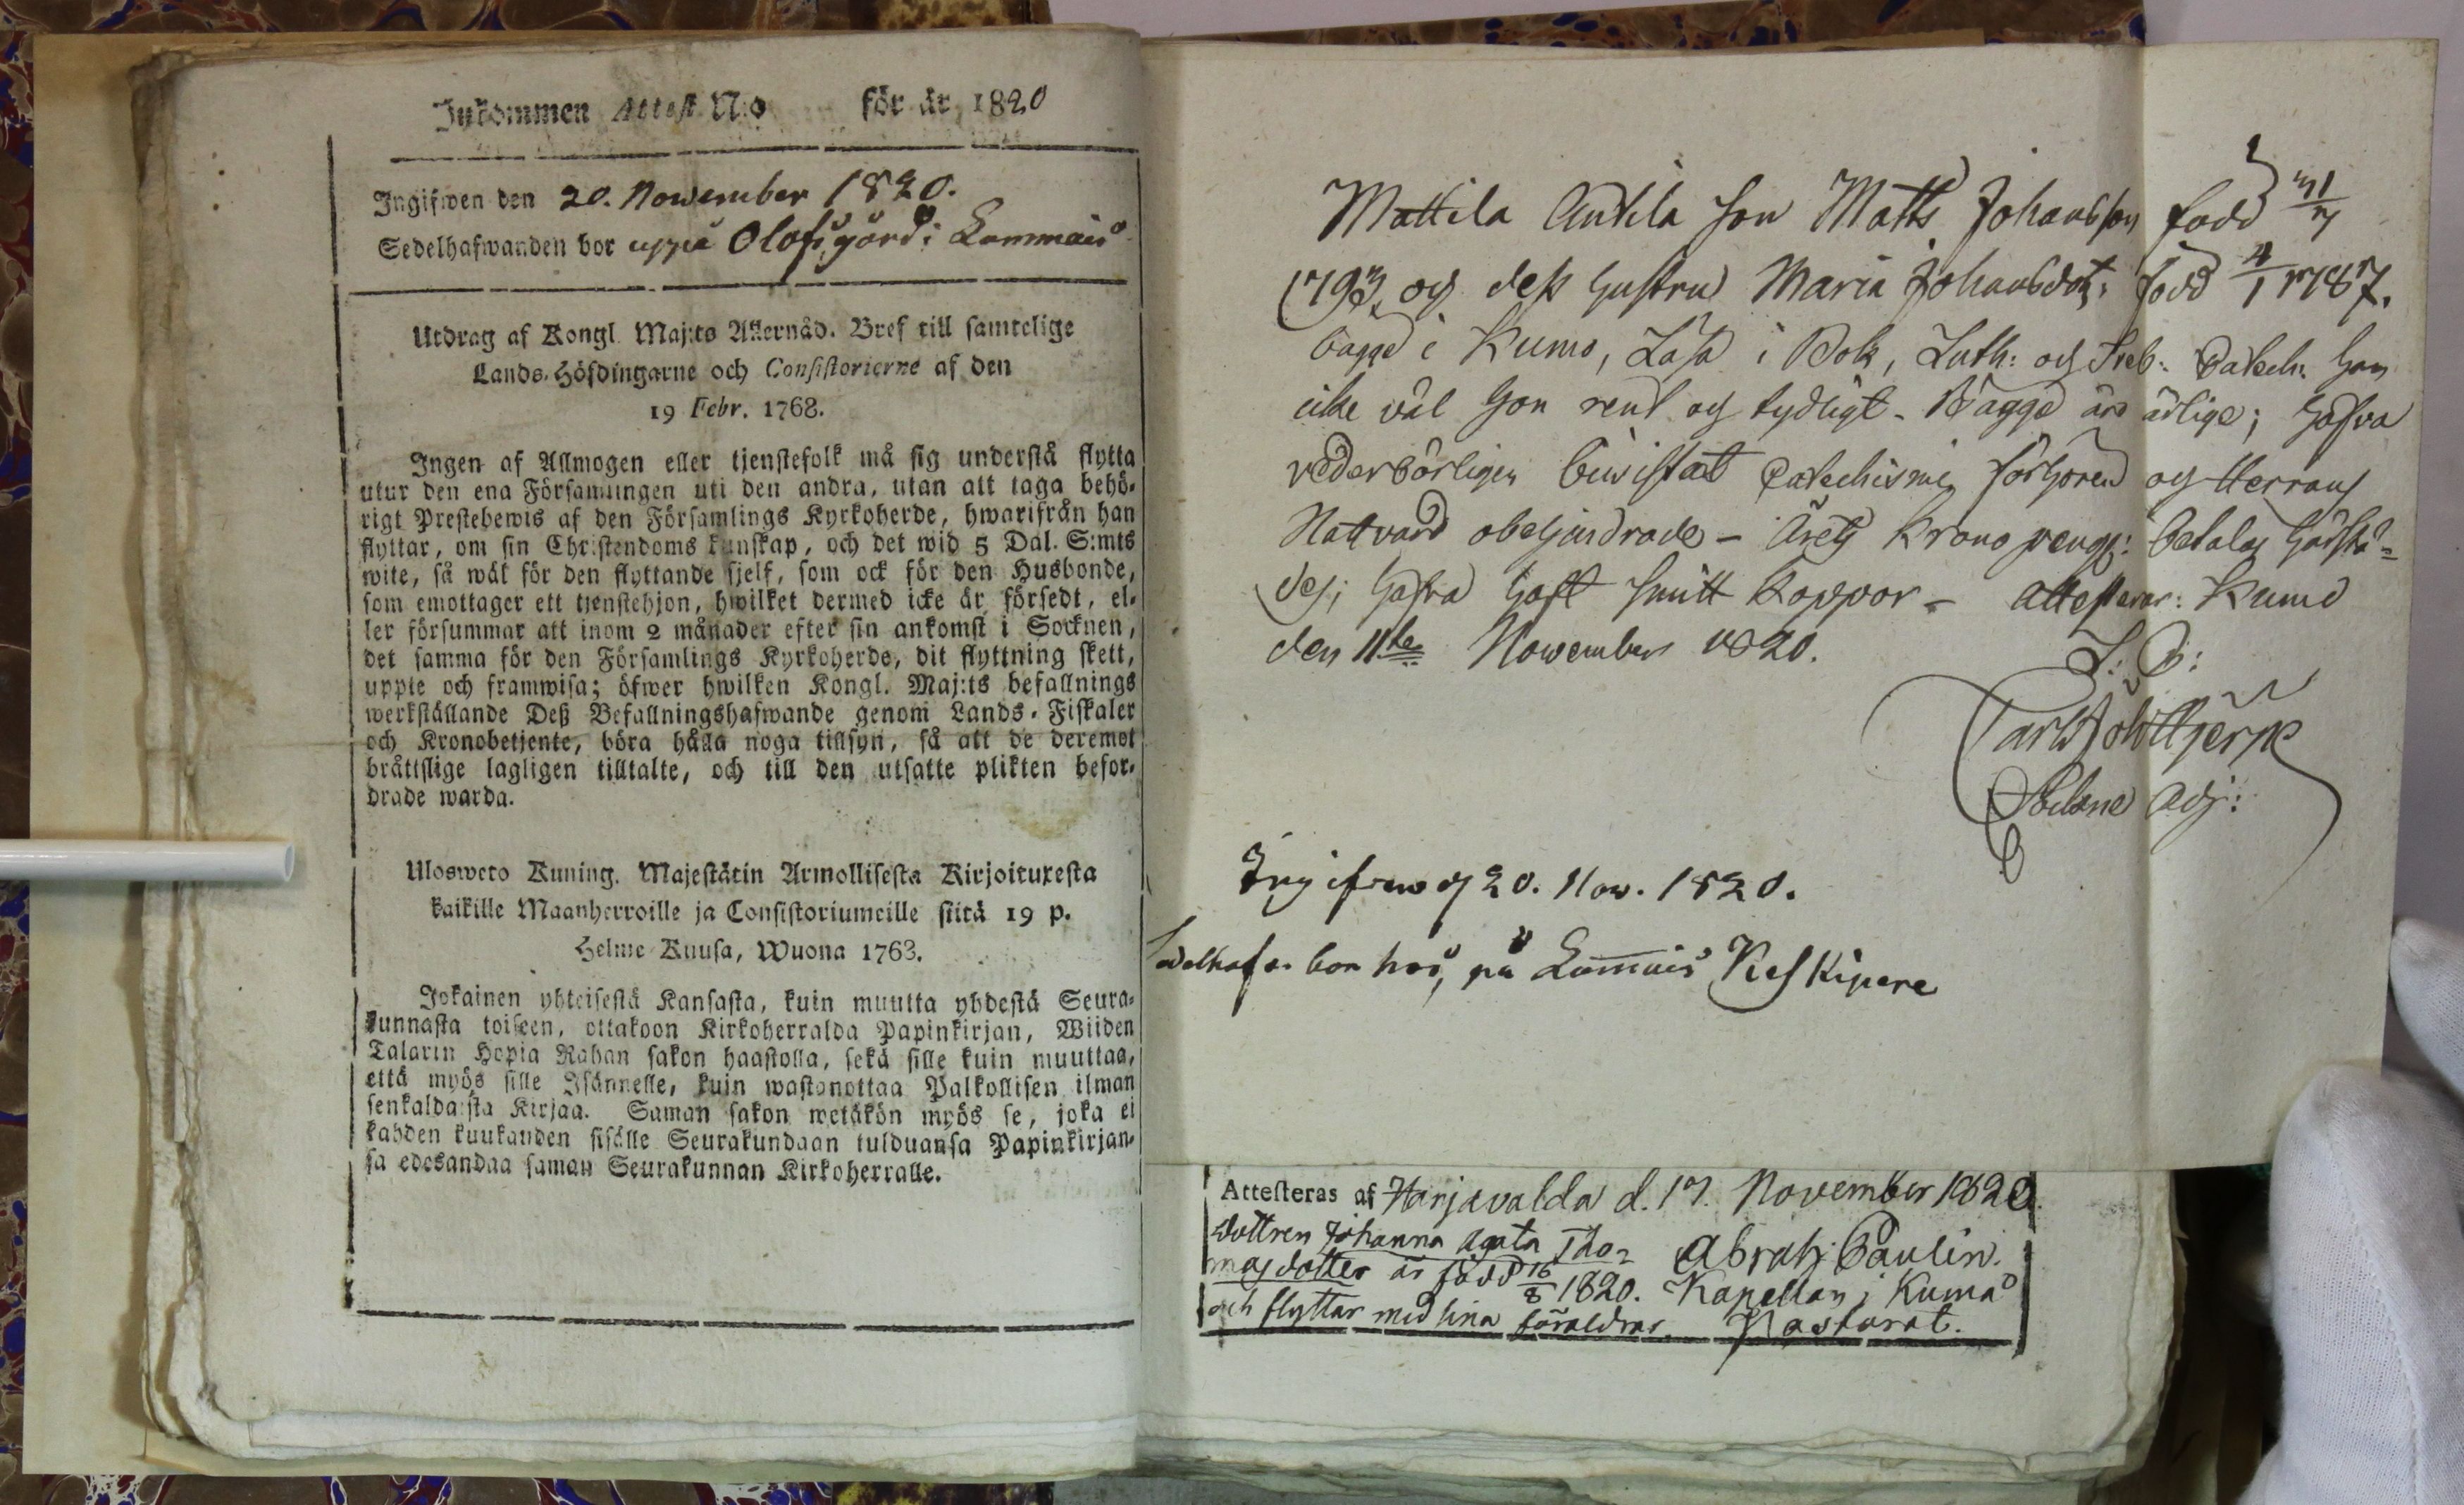 Inkommen Attest N:o för år 1820
Ingifwen den 20. November 1820.
Sedelhafwanden bor uppå Olofsgård i Lammais
Utdrag af Kongl. Maj:ts Allernåd. Bref till samtelige
Lands-Höfdingarne och Consistorierne af den
19 Febr. 1768.
Ingen af Allmogen eller tjenstefolk må sig understå flytta
utur den ena Församlingen uti den andra, utan att taga behö-
rigt Prestebewis af den Församlings Kyrkoherde, hwarifrån han
flyttar, om sin Christendoms kunskap, och det wid 5 Dal. S:mts
wite, så wäl för den flyttande sjelf, som ock för den Husbonde,
som emottager ett tjenstehjon, hwilket dermed icke är försedt, el-
ler försummar att inom 2 månader efter sin ankomst i Socknen,
det samma för den Församlings Kyrkoherde, dit flyttning skett,
uppte och framwisa; öfwer hwilken Kongl. Maj:ts befallnings
werkställande Deß Befallningshafwande genom Lands-Fiskaler
och Kronobetjente, böra hålla noga tillsyn, så att de deremot
bråttslige lagligen tilltalte, och till den utsatte plikten befor-
drade warda.
Ulosweto Kuning. Majestätin Armollisesta Kirjoituxesta
kaikille Maanherroille ja Consistoriumeille siitä 19 p.
Helme Kuusa, Wuona 1763.
Jokainen yhteisestä Kansasta, kuin muutta yhdestä Seura-
kunnasta toiseen, ottakoon Kirkoherralda Papinkirjan, Wiiden
Talarin Hopia Rahan sakon haastolla, sekä sille kuin muuttaa,
että myös sille Isännelle, kuin wastanottaa Palkollisen ilman
senkaldaista Kirjaa. Saman sakon wetäkön myös se, joka ei
kahden kuukauden sisälle Seurakundaan tulduansa Papinkirjan-
sa edesandaa saman Seurakunnan Kirkoherralle.
Mattila Anttila son Matts Johansson född 31/7
1793 och dess hustru Maria Johansdot: född 4/1 1787.
bägge i Kumo, Läsa i Bok, Luth: och Sveb: Catech: han
icke väl hon rent och tydligt - Bägge äro ärlige; hafva
vederbörligen bewistat Catechismi förhören och Herrans
Nattvard obehindrade - Årets Krono peng: betalas härstä=
des; hafva haft Smitt Koppor - attesterar: Kumo
den 11te November 1820.
Adj:
Ingifven d 20. Nov. 1820.
bor hos, på Lammais Keskipere
Attesteras af Harjavalda d. 17. November 1820.
Dottren Johanna Agata Tho=
masdotter är född 16/8 1820.
och flyttar med sina föräldrar.
Abrah: Paulin.
Kapellan i Kumo
Pastorat.